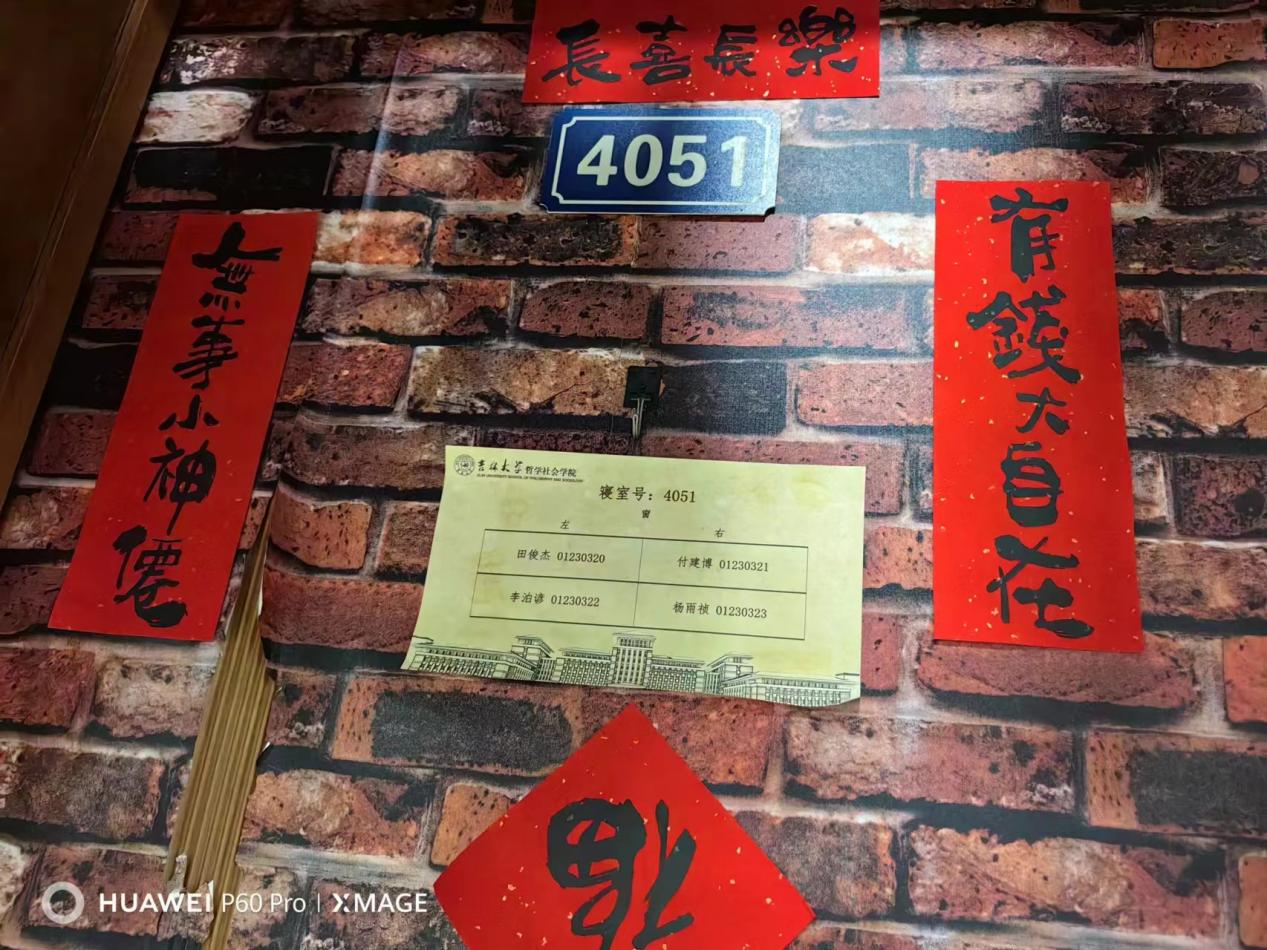 長喜長樂
4051
無事小神僊
有錢大自在
吉林大学 哲学社会学院
JILIN UNIVERSITY SCHOOL OF PHILOSOPHY AND SOCIOLOGY
寝室号：4051
窗
左 右
田俊杰 01230320 付建博 01230321
李泊谚 01230322 杨雨祯 01230323
福
HUAWEI P60 Pro | XMAGE